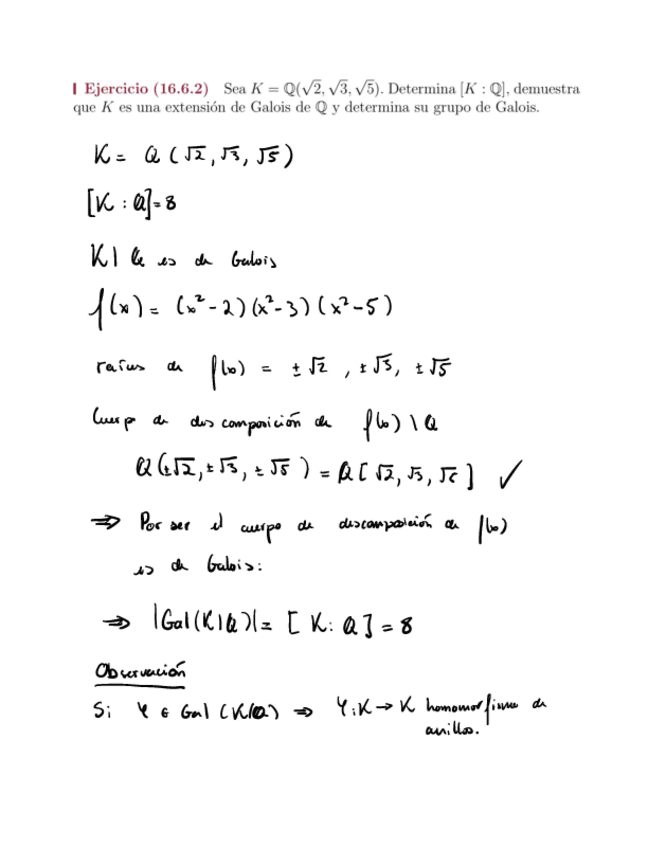 Ejercicio (16.6.2) Sea K = ℚ(√2, √3, √5). Determina [K : ℚ], demuestra
que K es una extensión de Galois de ℚ y determina su grupo de Galois.
K = Q (√2, √3, √5)
[K : Q] = 8
K | Q es de Galois
f(x) = (x² - 2)(x² - 3)(x² - 5)
raíces de f(x) = ± √2 , ± √3, ± √5
Cuerpo de descomposición de f(x) \ Q
Q (±√2, ±√3, ± √5 ) = Q [ √2, √3, √5 ] ✓
⇒ Por ser el cuerpo de descomposición de f(x)
es de Galois:
⇒ |Gal(K|Q)| = [ K : Q ] = 8
Observación
Si φ ∈ Gal (K|Q) ⇒ φ: K → K homomorfismo de
anillos.